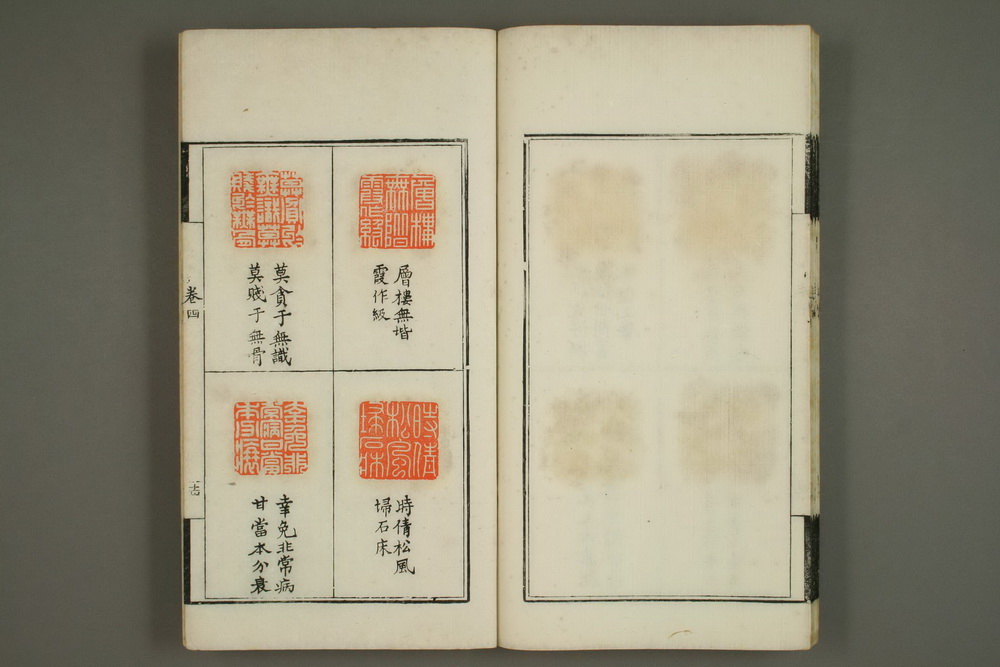 層樓無堦
霞作級
時倩松風
埽石床
莫貪于無識
莫賤于無骨
幸免非常病
甘當本分衰
卷四